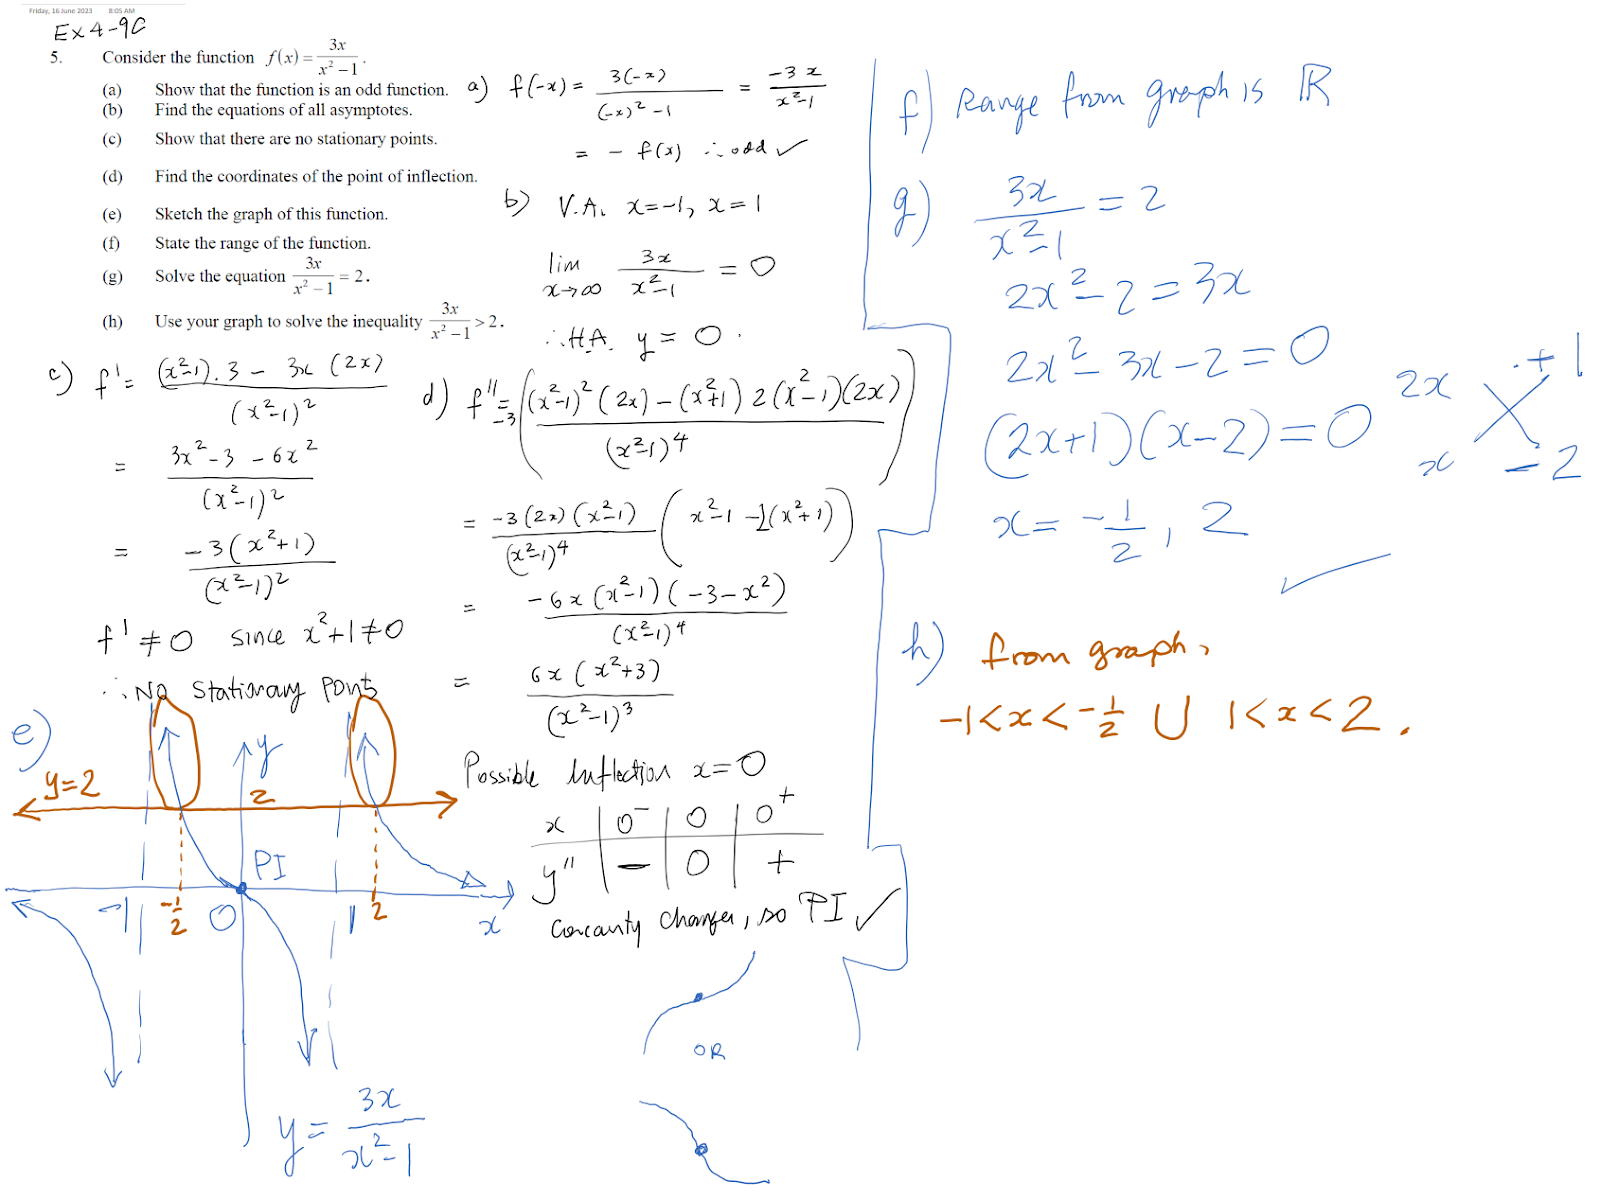 Friday, 16 June 2023 8:05 AM
Ex 4-9C
5. Consider the function f(x) = 3x/(x² − 1).
(a) Show that the function is an odd function.
(b) Find the equations of all asymptotes.
(c) Show that there are no stationary points.
(d) Find the coordinates of the point of inflection.
(e) Sketch the graph of this function.
(f) State the range of the function.
(g) Solve the equation 3x/(x² − 1) = 2.
(h) Use your graph to solve the inequality 3x/(x² − 1) > 2.
a) f(-x) = 3(-x)/((-x)² - 1) = -3x/(x²-1)
= - f(x) ∴ odd ✓
b) V.A. x=-1, x=1
lim x→∞ 3x/(x²-1) = 0
∴ H.A. y = 0.
c) f' = ((x²-1).3 - 3x(2x))/(x²-1)²
= (3x²-3-6x²)/(x²-1)²
= -3(x²+1)/(x²-1)²
f' ≠ 0 since x²+1≠0
∴ No stationary points
d) f'' = -3(((x²-1)²(2x) - (x²+1)2(x²-1)(2x))/(x²-1)⁴)
= -3(2x)(x²-1)/(x²-1)⁴ (x²-1-2(x²+1))
= -6x(x²-1)(-3-x²)/(x²-1)⁴
= 6x(x²+3)/(x²-1)³
Possible Inflection x=0
x | 0⁻ | 0 | 0⁺
y'' | − | 0 | +
Concavity changes, so PI ✓
OR
e)
y=2
2
y
PI
-1 -1/2 0 1 2 x
y = 3x/(x²-1)
f) Range from graph is ℝ
g) 3x/(x²-1) = 2
2x²-2=3x
2x²-3x-2=0
2x +1
x -2
(2x+1)(x-2)=0
x = -1/2, 2
✓
h) from graph,
-1<x<-1/2 ∪ 1<x<2.